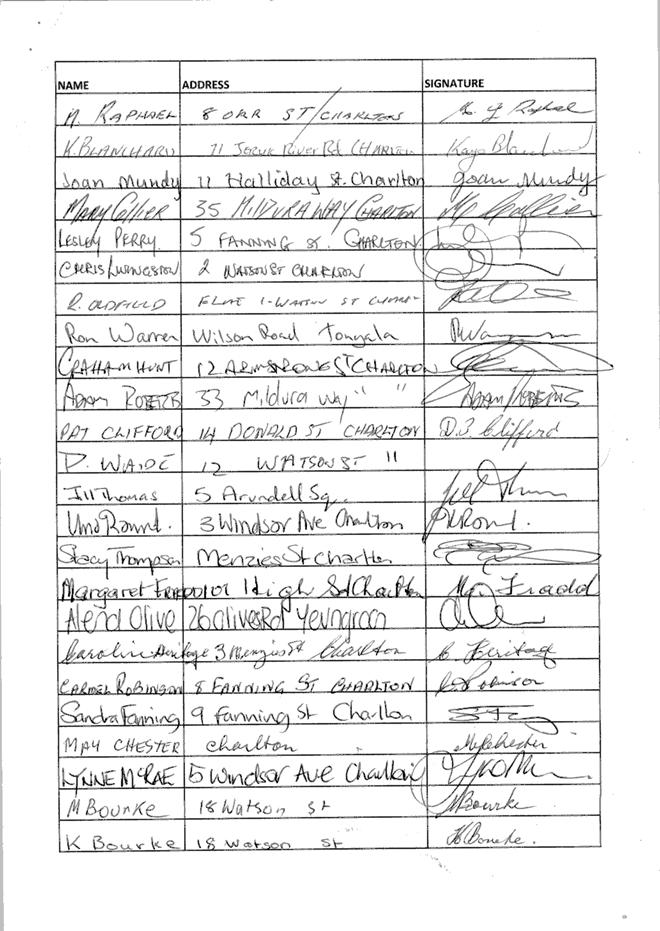 NAME ADDRESS SIGNATURE
M. RAPHAEL 8 ORR ST CHARLTON
K. BLANCHARD 71 River Rd CHARLTON
Joan Mundy 11 Halliday St. Charlton Joan Mundy
MARY COLLIER 35 MILDURA WAY CHARLTON
LESLEY PERRY. 5 FANNING ST. CHARLTON
CHRIS LIVINGSTON 2 WATSON ST CHARLTON
R. OLDFIELD FLAT 1-WATSON ST
Ron Warren Wilson Road Tongala
GRAHAM HUNT 12 ARMSTRONG ST CHARLTON
ADAM ROBERTS 33 Mildura Way " "
PAT CLIFFORD 14 DONALD ST CHARLTON D.J. Clifford
D. WAIDE 12 WATSON ST "
Jill Thomas 5 Arundell Sq.
3 Windsor Ave Charlton
Stacy Thompson Menzies St Charlton
Margaret High St Charlton
Alena Olive 26 Olives Rd Yeungroon
Caroline Heritage 3 Menzies St Charlton C. Heritage
CARMEL ROBINSON 8 FANNING ST CHARLTON C. Robinson
Sandra Fanning 9 Fanning St Charlton
MAY CHESTER Charlton
LYNNE McRAE 5 Windsor Ave Charlton
M BOURKE 18 Watson St MBourke
K Bourke 18 Watson St KBourke.